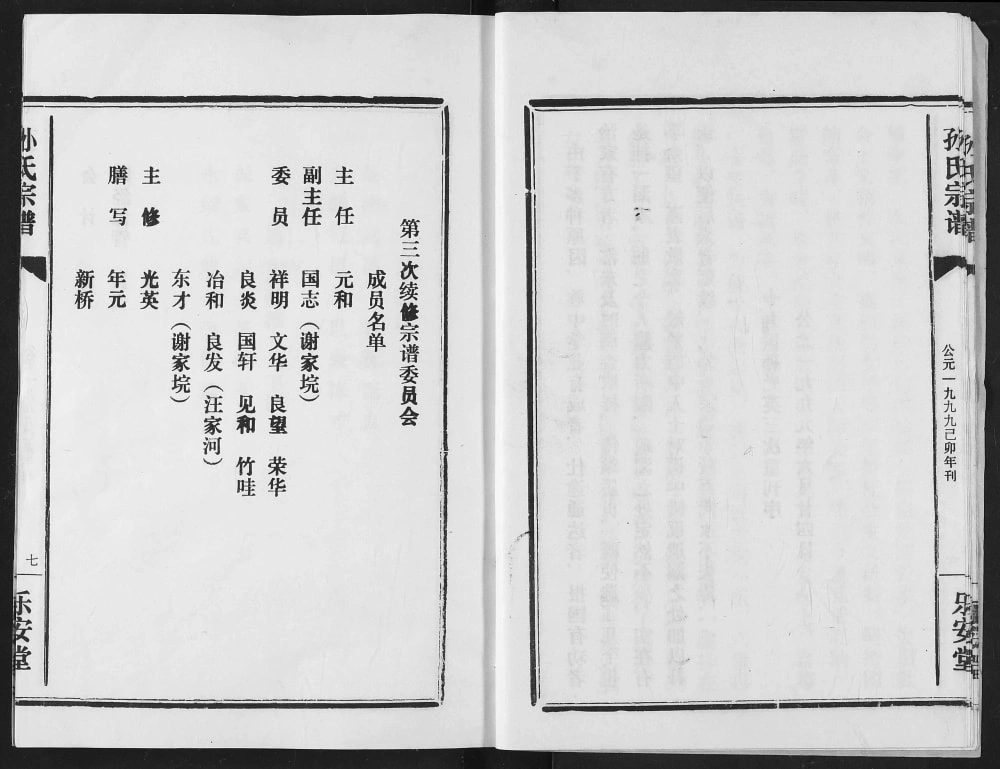 孙氏宗谱
公元一九九九己卯年刊
乐安堂
第三次续修宗谱委员会
成员名单
主 任 元和
副主任 国志（谢家垸）
委 员 祥明 文华 良望 荣华
良炎 国轩 见和 竹哇
冶和 良发（汪家河）
东才（谢家垸）
主 修 光英
膳 写 年元
新桥
孙氏宗谱
七
乐安堂